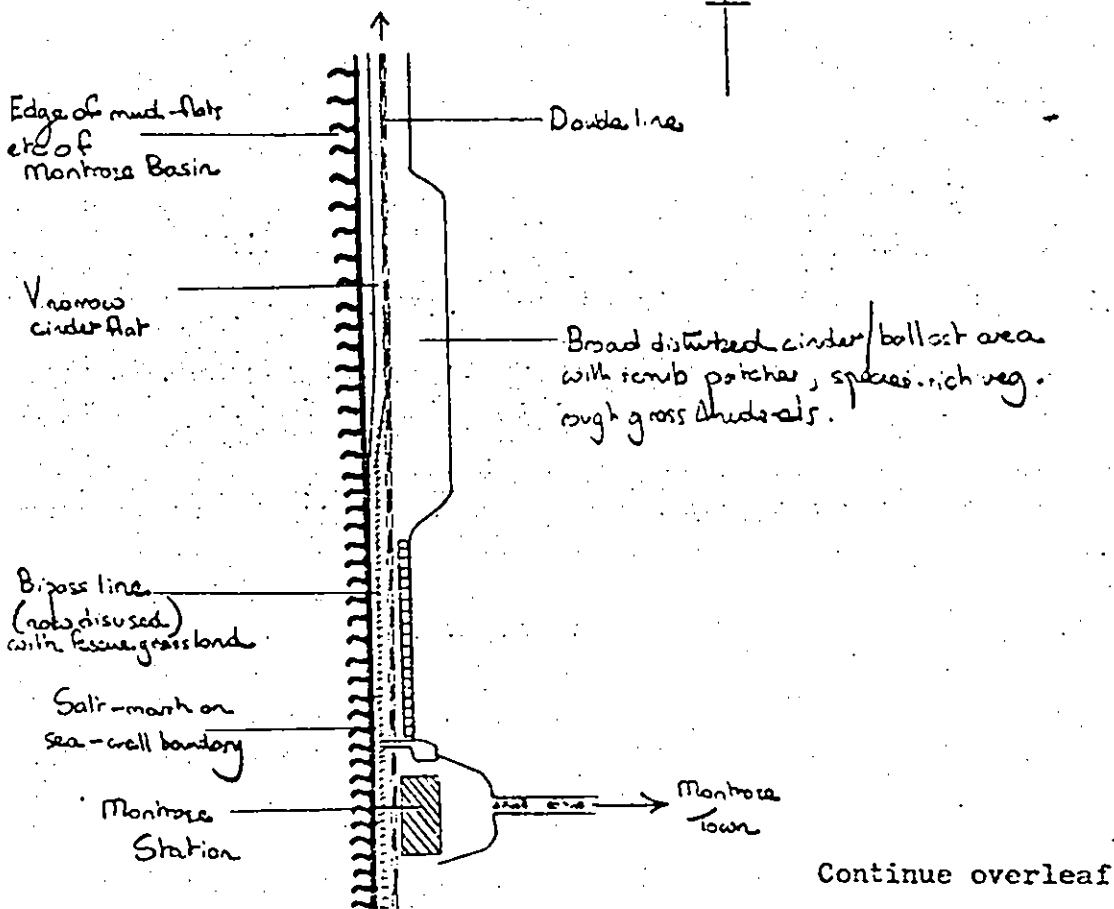 Edge of mud-flats
etc of
Montrose Basin
Double line
V narrow
cinder flat
Broad disturbed cinder/ballast area
with scrub patches, species-rich veg.
rough grass & ruderals.
Bipass line
(now disused)
with fescue grassland
Salt-marsh on
sea-wall boundary
Montrose
Station
Montrose
Town
Continue overleaf